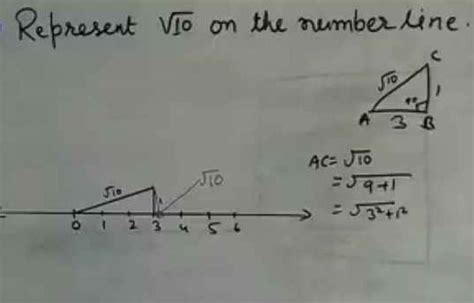 Represent √10 on the number line.
C
√10
1
90
A 3 B
AC = √10
= √9+1
= √3²+1²
√10
√10
1
0 1 2 3 4 5 6